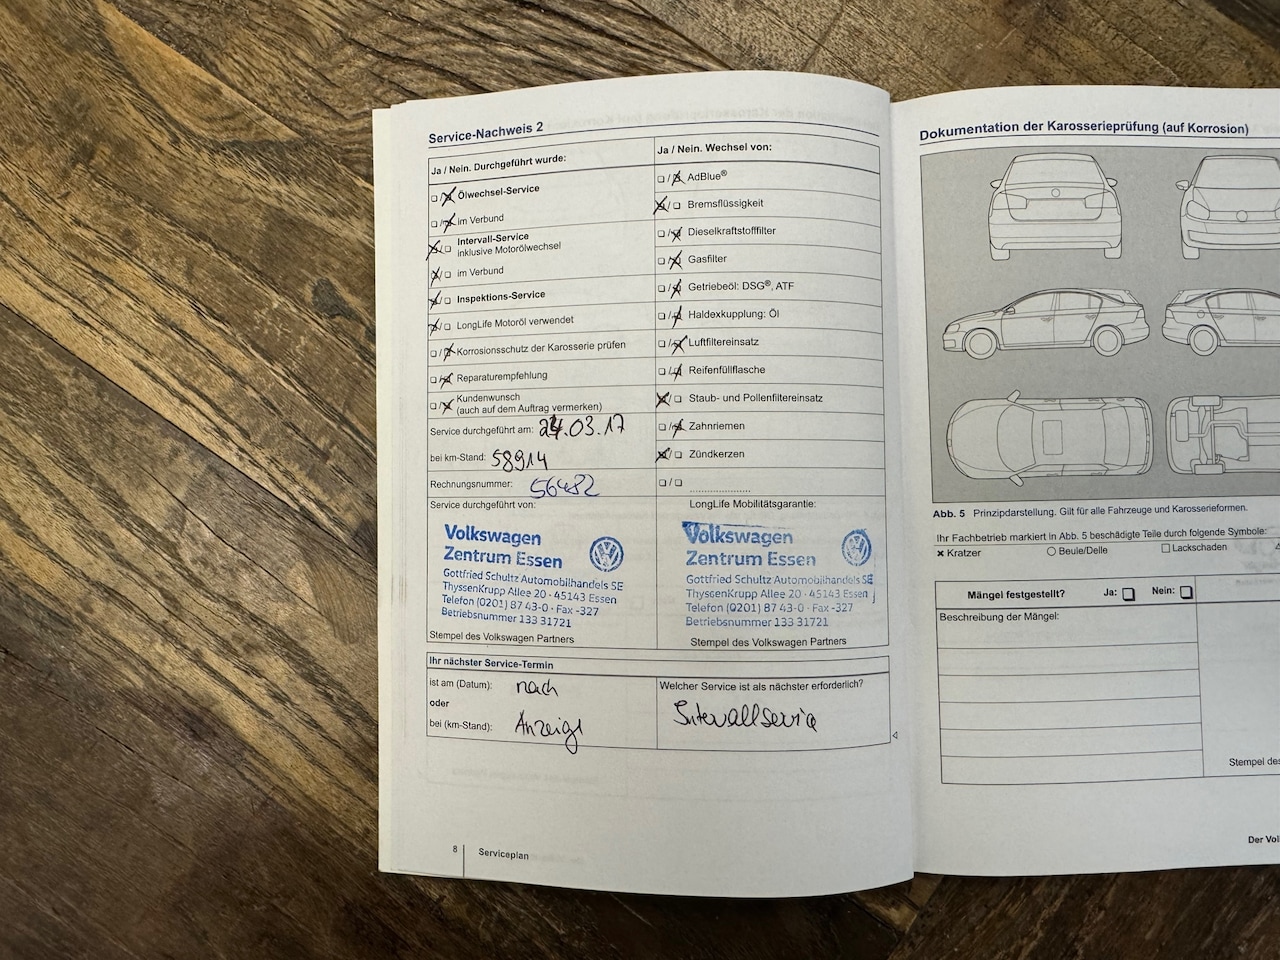 Service-Nachweis 2
Ja / Nein. Durchgeführt wurde:
☐/☒ Ölwechsel-Service
☐/☒ im Verbund
☒/☐ Intervall-Service
inklusive Motorölwechsel
☒/☐ im Verbund
☒/☐ Inspektions-Service
☒/☐ LongLife Motoröl verwendet
☐/☒ Korrosionsschutz der Karosserie prüfen
☐/☒ Reparaturempfehlung
☐/☒ Kundenwunsch
(auch auf dem Auftrag vermerken)
Service durchgeführt am: 24.03.17
bei km-Stand: 58914
Rechnungsnummer: 56482
Service durchgeführt von:
Volkswagen
Zentrum Essen
Gottfried Schultz Automobilhandels SE
ThyssenKrupp Allee 20 · 45143 Essen
Telefon (0201) 87 43-0 · Fax -327
Betriebsnummer 133 31721
Stempel des Volkswagen Partners
Ja / Nein. Wechsel von:
☐/☒ AdBlue®
☒/☐ Bremsflüssigkeit
☐/☒ Dieselkraftstofffilter
☐/☒ Gasfilter
☐/☒ Getriebeöl: DSG®, ATF
☐/☒ Haldexkupplung: Öl
☐/☒ Luftfiltereinsatz
☐/☒ Reifenfüllflasche
☒/☐ Staub- und Pollenfiltereinsatz
☐/☒ Zahnriemen
☒/☐ Zündkerzen
☐/☐ ....................
LongLife Mobilitätsgarantie:
Volkswagen
Zentrum Essen
Gottfried Schultz Automobilhandels SE
ThyssenKrupp Allee 20 · 45143 Essen
Telefon (0201) 87 43-0 · Fax -327
Betriebsnummer 133 31721
Stempel des Volkswagen Partners
Ihr nächster Service-Termin
ist am (Datum): nach
oder
bei (km-Stand): Anzeige
Welcher Service ist als nächster erforderlich?
Intervallservice
8 Serviceplan
Dokumentation der Karosserieprüfung (auf Korrosion)
Abb. 5 Prinzipdarstellung. Gilt für alle Fahrzeuge und Karosserieformen.
Ihr Fachbetrieb markiert in Abb. 5 beschädigte Teile durch folgende Symbole:
✖ Kratzer ○ Beule/Delle ☐ Lackschaden
Mängel festgestellt? Ja: ☐ Nein: ☐
Beschreibung der Mängel:
Stempel des
Der Vol